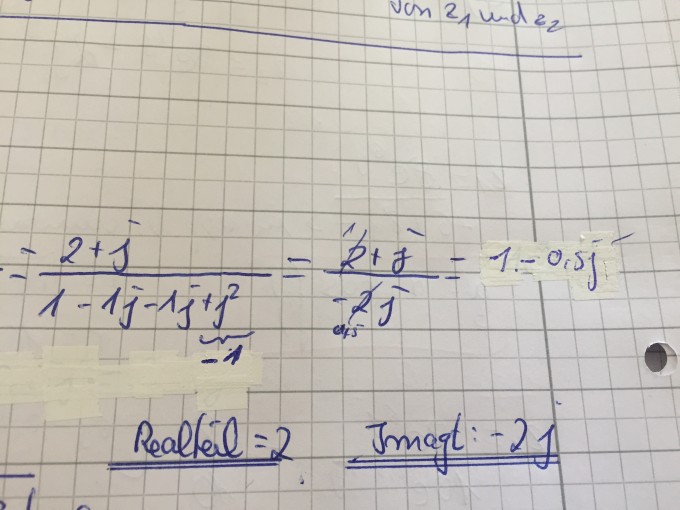 von z₁ und z₂
= (2 + j) / (1 - 1j - 1j + j²) = (2 + j) / (-2j) = -1 - 0,5j
1
0,5
-1
Realteil = 2 Imagt: -2j